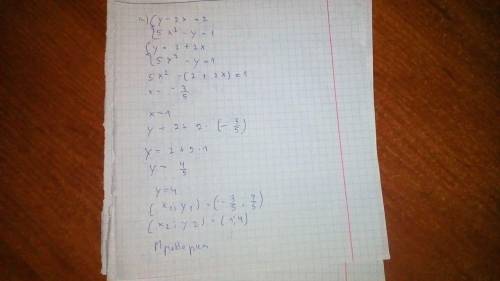 {y - 2x = 2
{5x² - y = 1
{y = 2 + 2x
{5x² - y = 1
5x² - (2 + 2x) = 1
x = - 3/5
x = 1
y = 2 + 2 · (- 3/5)
y = 2 + 2 · 1
y = 4/5
y = 4
(x₁; y₁) = (- 3/5; 4/5)
(x₂; y₂) = (1; 4)
Проверка